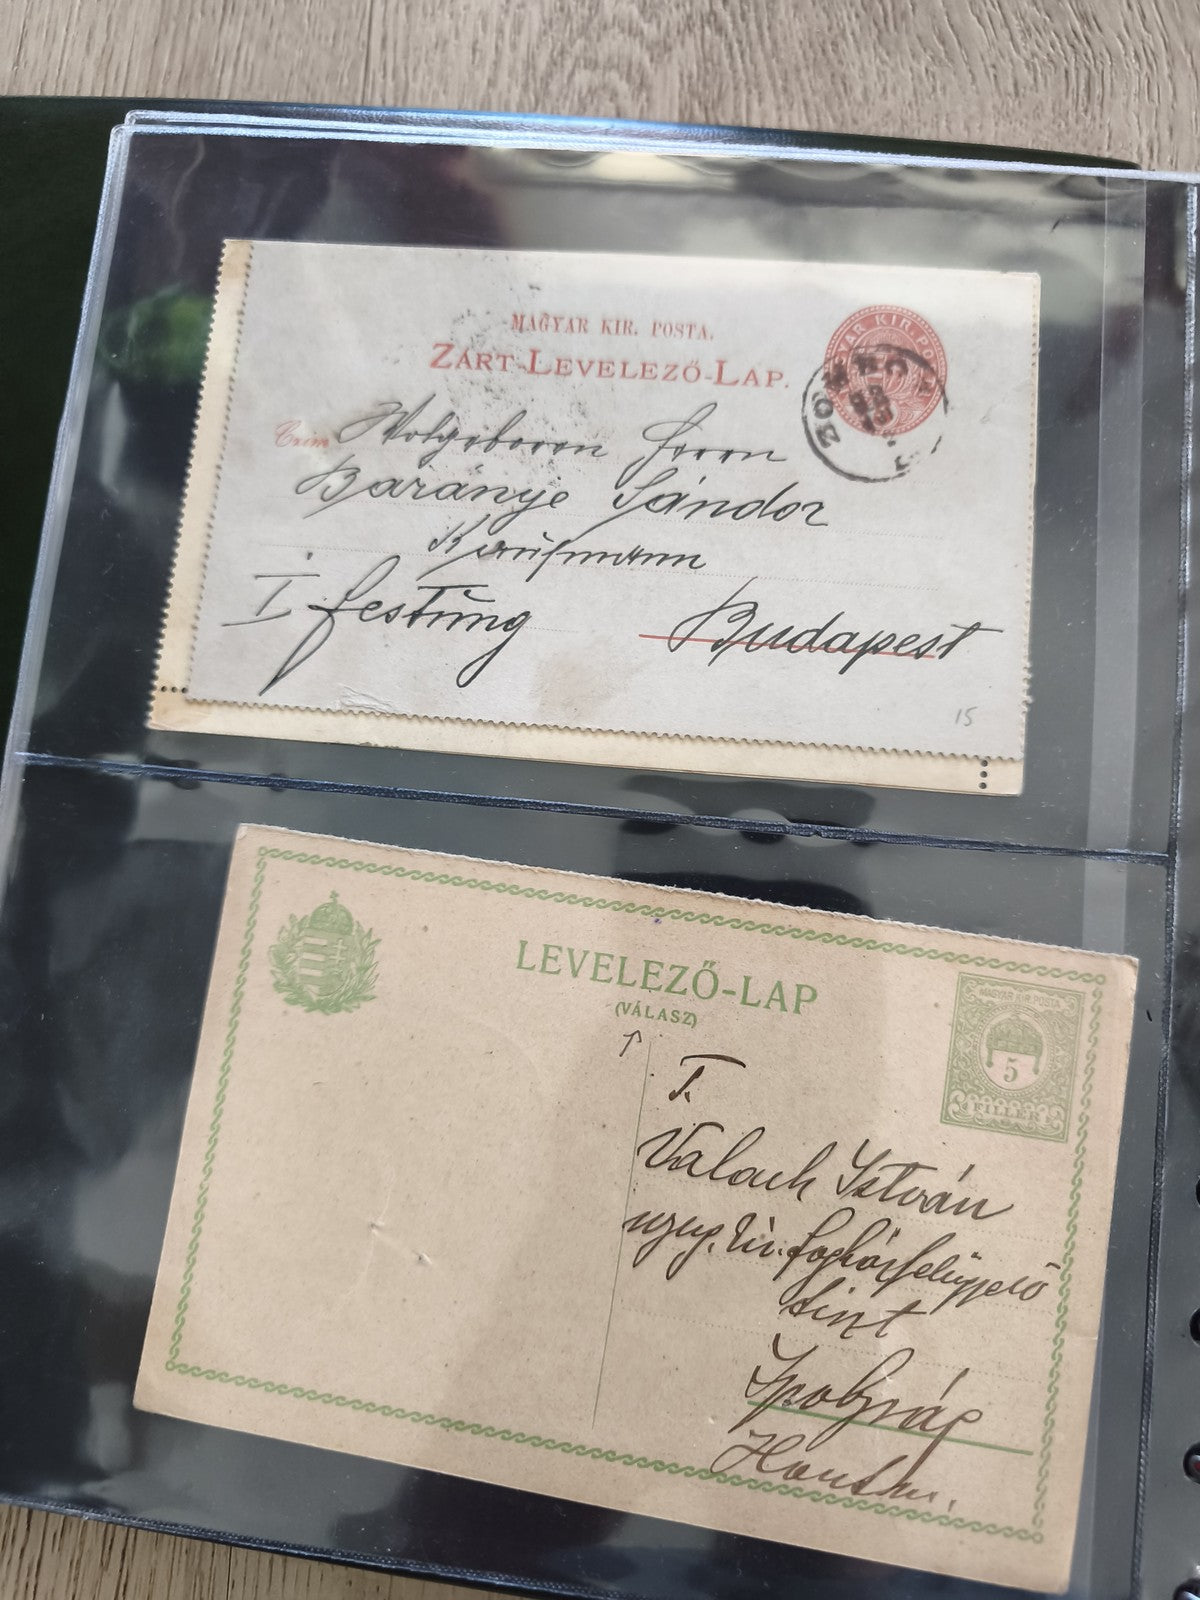 MAGYAR KIR. POSTA.
ZÁRT-LEVELEZŐ-LAP.
MAGYAR KIR. POSTA
Czim Wolgeboren Herrn
Baránye Sándor
Kaufmann
I. Festung Budapest
15
LEVELEZŐ-LAP
(VÁLASZ)
MAGYAR KIR. POSTA
5
FILLÉR
T.
Valach István
kir. fogházfelügyelő
Ipolyság